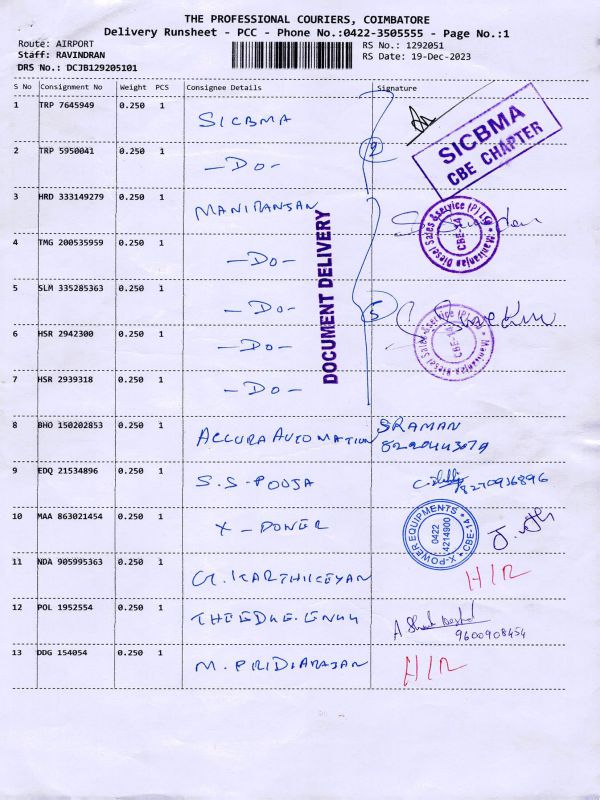 THE PROFESSIONAL COURIERS, COIMBATORE
Delivery Runsheet - PCC - Phone No.:0422-3505555 - Page No.:1
Route: AIRPORT
Staff: RAVINDRAN
DRS No.: DCJB129205101
RS No.: 1292051
RS Date: 19-Dec-2023
S No Consignment No Weight PCS Consignee Details Signature
1 TRP 7645949 0.250 1 SICBMA
SICBMA
CBE CHAPTER
2 TRP 5950041 0.250 1 -DO-
2
3 HRD 333149279 0.250 1 MANIRANJAN
Maniranjan Diesel Sales &Service (P) Ltd
CBE-14
4 TMG 200535959 0.250 1 -DO-
DOCUMENT DELIVERY
5 SLM 335285363 0.250 1 -DO-
5
Maniranjan Diesel Sales &Service (P) Ltd
CBE-14
6 HSR 2942300 0.250 1 -DO-
7 HSR 2939318 0.250 1 -DO-
8 BHO 150202853 0.250 1 ACCURA AUTOMATION SRAMAN
9 EDQ 21534896 0.250 1 S.S-POOJA
8270936896
10 MAA 863021454 0.250 1 X-POWER
X-POWER EQUIPMENTS * CBE-14 *
0422
4214900
11 NDA 905995363 0.250 1 G.KARTHIKEYAN
12 POL 1952554 0.250 1 THEEDGE.
9600908454
13 DDG 154054 0.250 1 M.